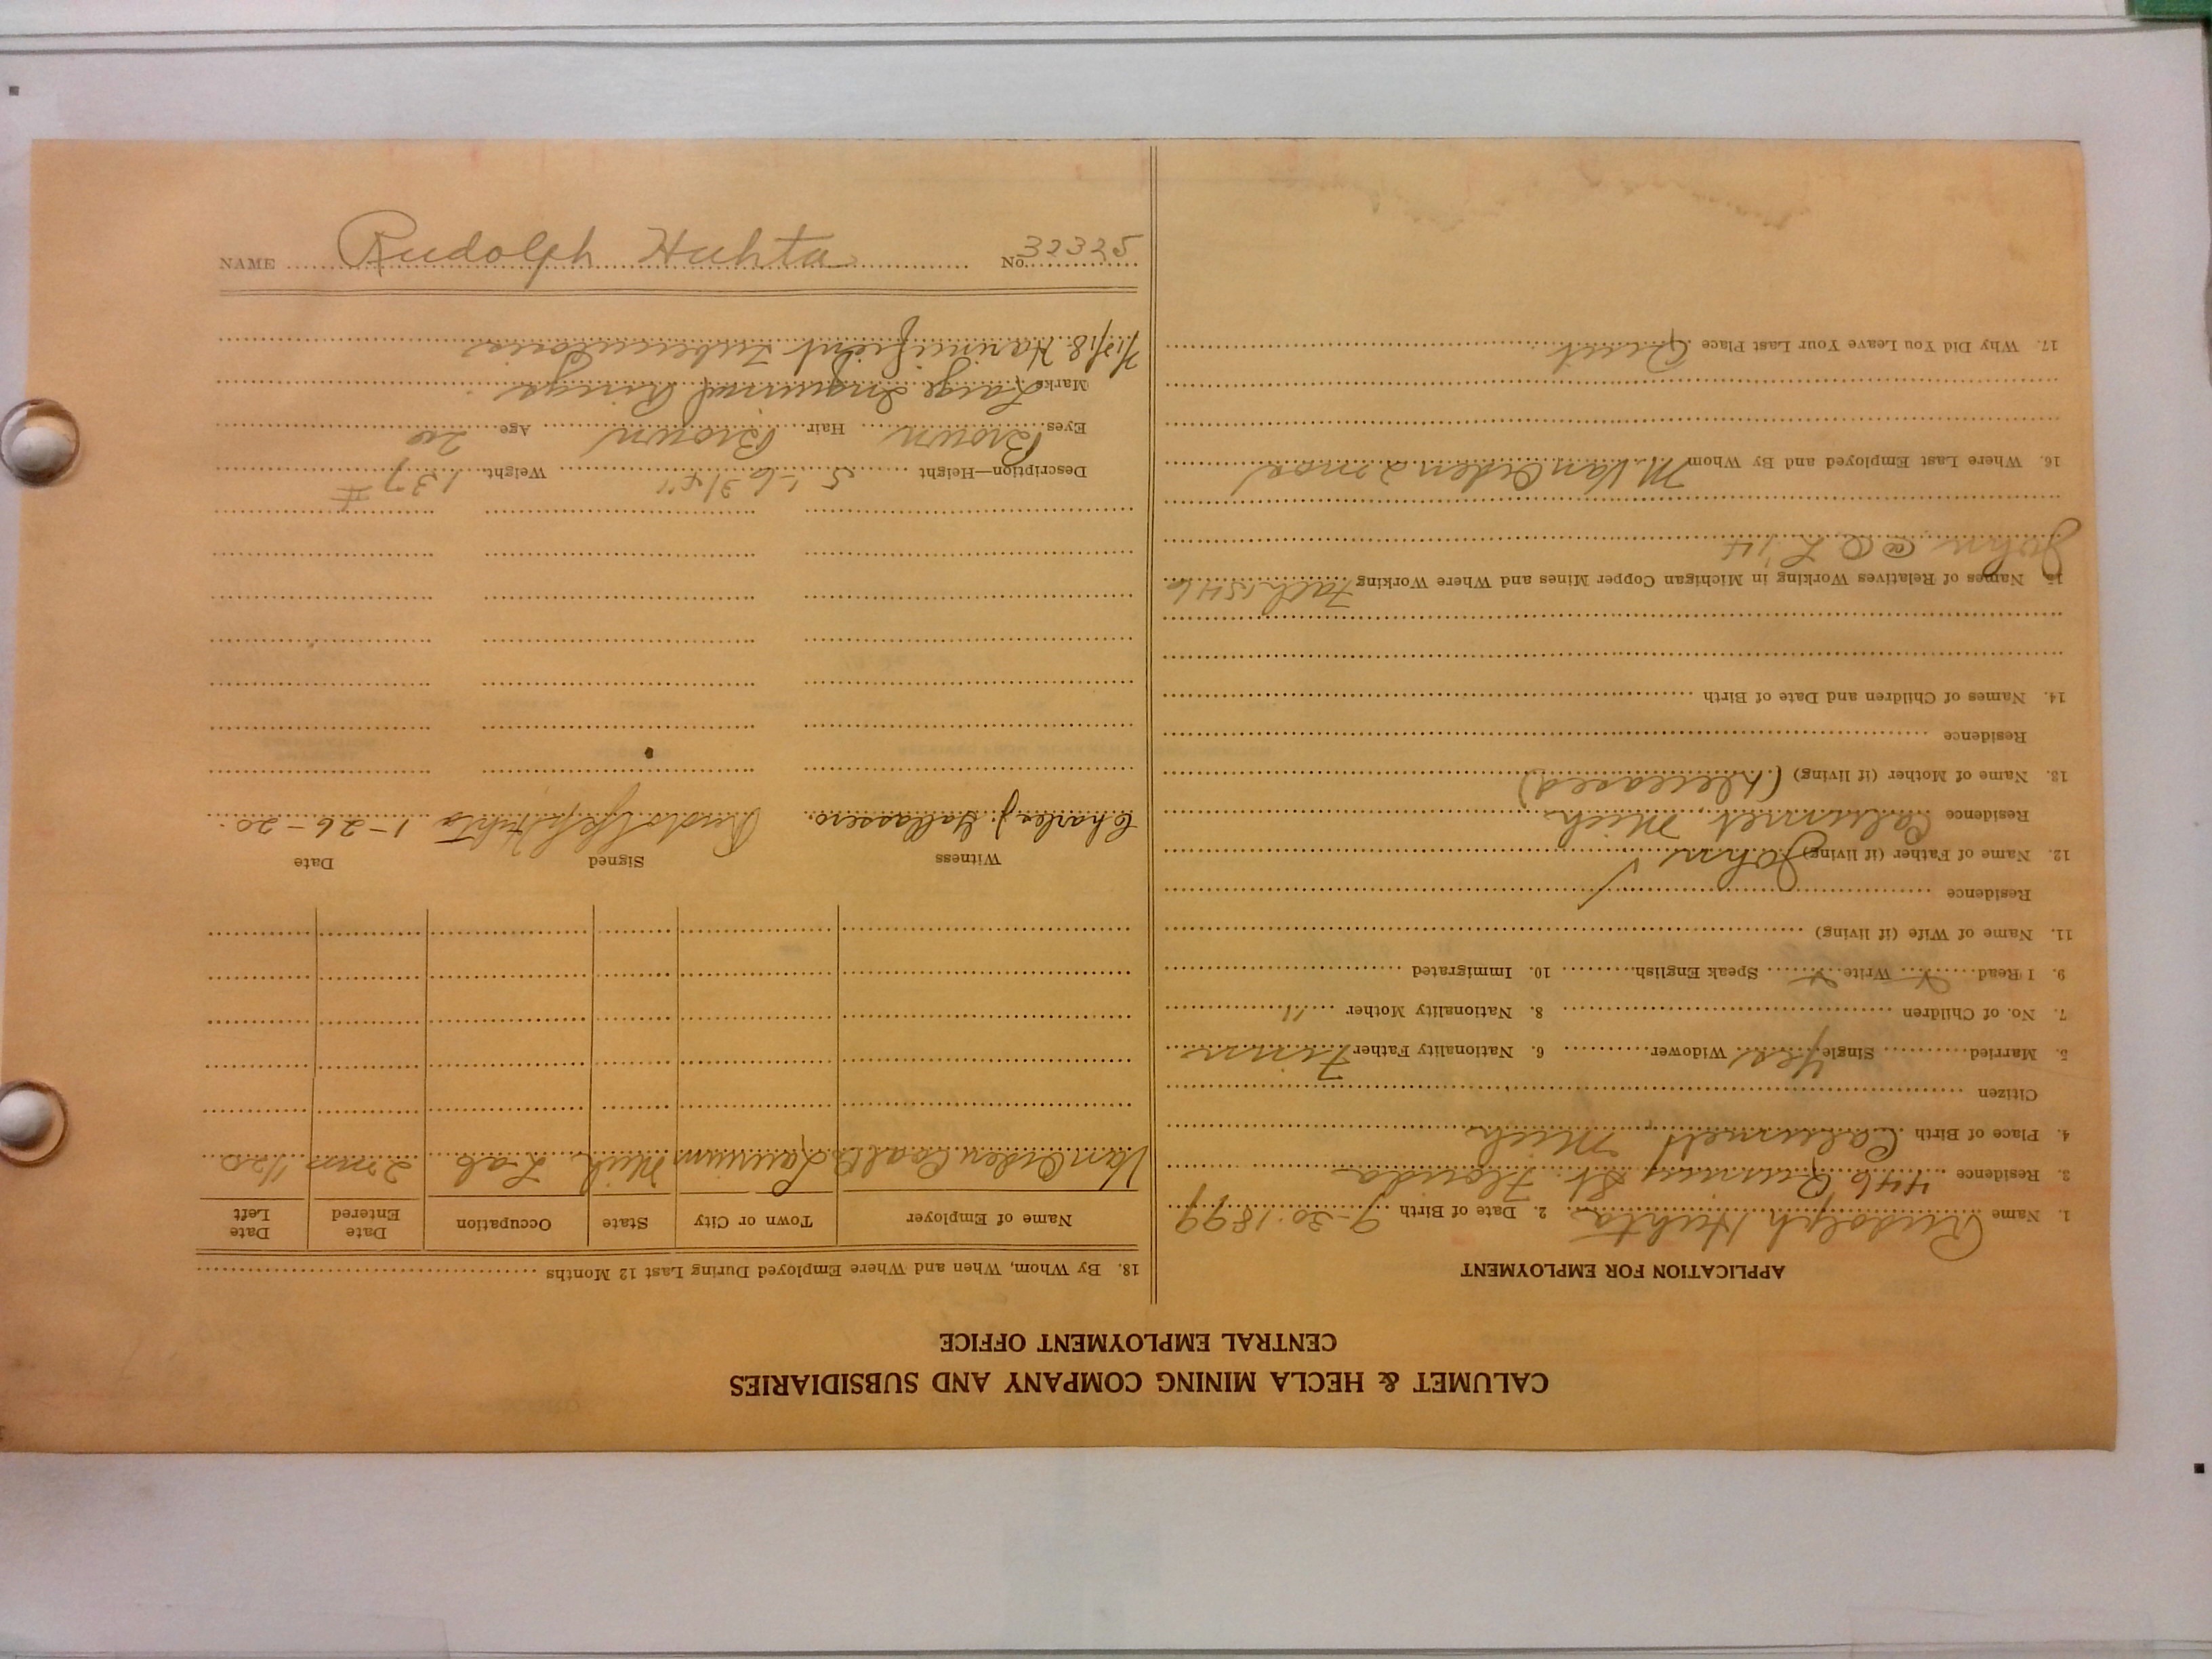 CALUMET & HECLA MINING COMPANY AND SUBSIDIARIES
CENTRAL EMPLOYMENT OFFICE
APPLICATION FOR EMPLOYMENT
1. Name Rudolph Huhta 2. Date of Birth 9-30-1899
3. Residence 446 Quincy St. Florida
4. Place of Birth Calumet Mich
Citizen
5. Married Single Yes Widower 6. Nationality Father Finn
7. No. of Children 8. Nationality Mother "
9. I Read Write Speak English 10. Immigrated
11. Name of Wife (if living)
Residence
12. Name of Father (if living) John
Residence Calumet, Mich
13. Name of Mother (if living) (Deceased)
Residence
14. Names of Children and Date of Birth
15. Names of Relatives Working in Michigan Copper Mines and Where Working Fath 1546
John @
16. Where Last Employed and By Whom M. Van Orden 2 mos
17. Why Did You Leave Your Last Place Quit
18. By Whom, When and Where Employed During Last 12 Months
Name of Employer Town or City State Occupation Date Entered Date Left
Van Orden Coal Laurium Mich Lab 2 mos 1/20
Witness Signed Date
Charles J. Rudolph Huhta 1-26-20.
Description—Height 5'-6 3/4" Weight 137 #
Eyes Brown Hair Brown Age 20
Marks Large Inguinal Rings
Tuberculosis
NAME Rudolph Huhta No 32325